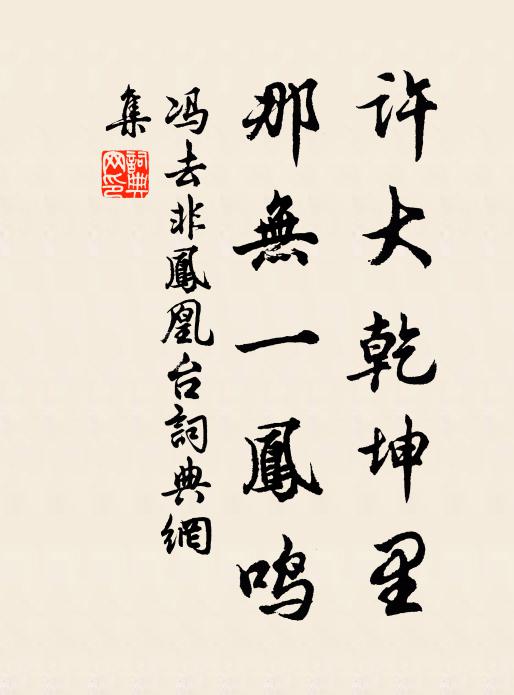 许大乾坤里
那無一鳳鸣
冯去非鳳凰台詞典網
集
詞典網印